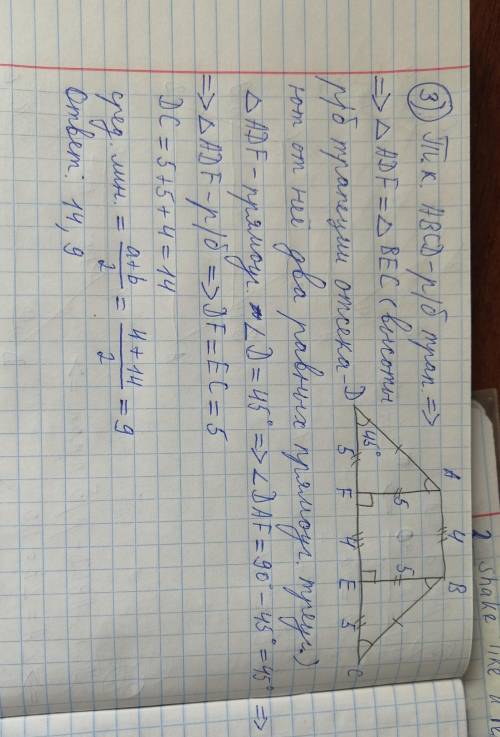 ③ Т.к. ABCD-р/б трап. =>
=> △ADF = △BEC (высоты
р/б трапеции отсека-
ют от неё два равных прямоуг. треуг.)
△ADF-прямоуг. ∠D = 45° => ∠DAF = 90° - 45° = 45° =>
=> △ADF-р/б => DF = EC = 5
DC = 5+5+4 = 14
сред. лин. = a+b/2 = 4+14/2 = 9
Ответ: 14, 9
A 4 B
5 5
D 45° 5 F 4 E 5 C
shake like a